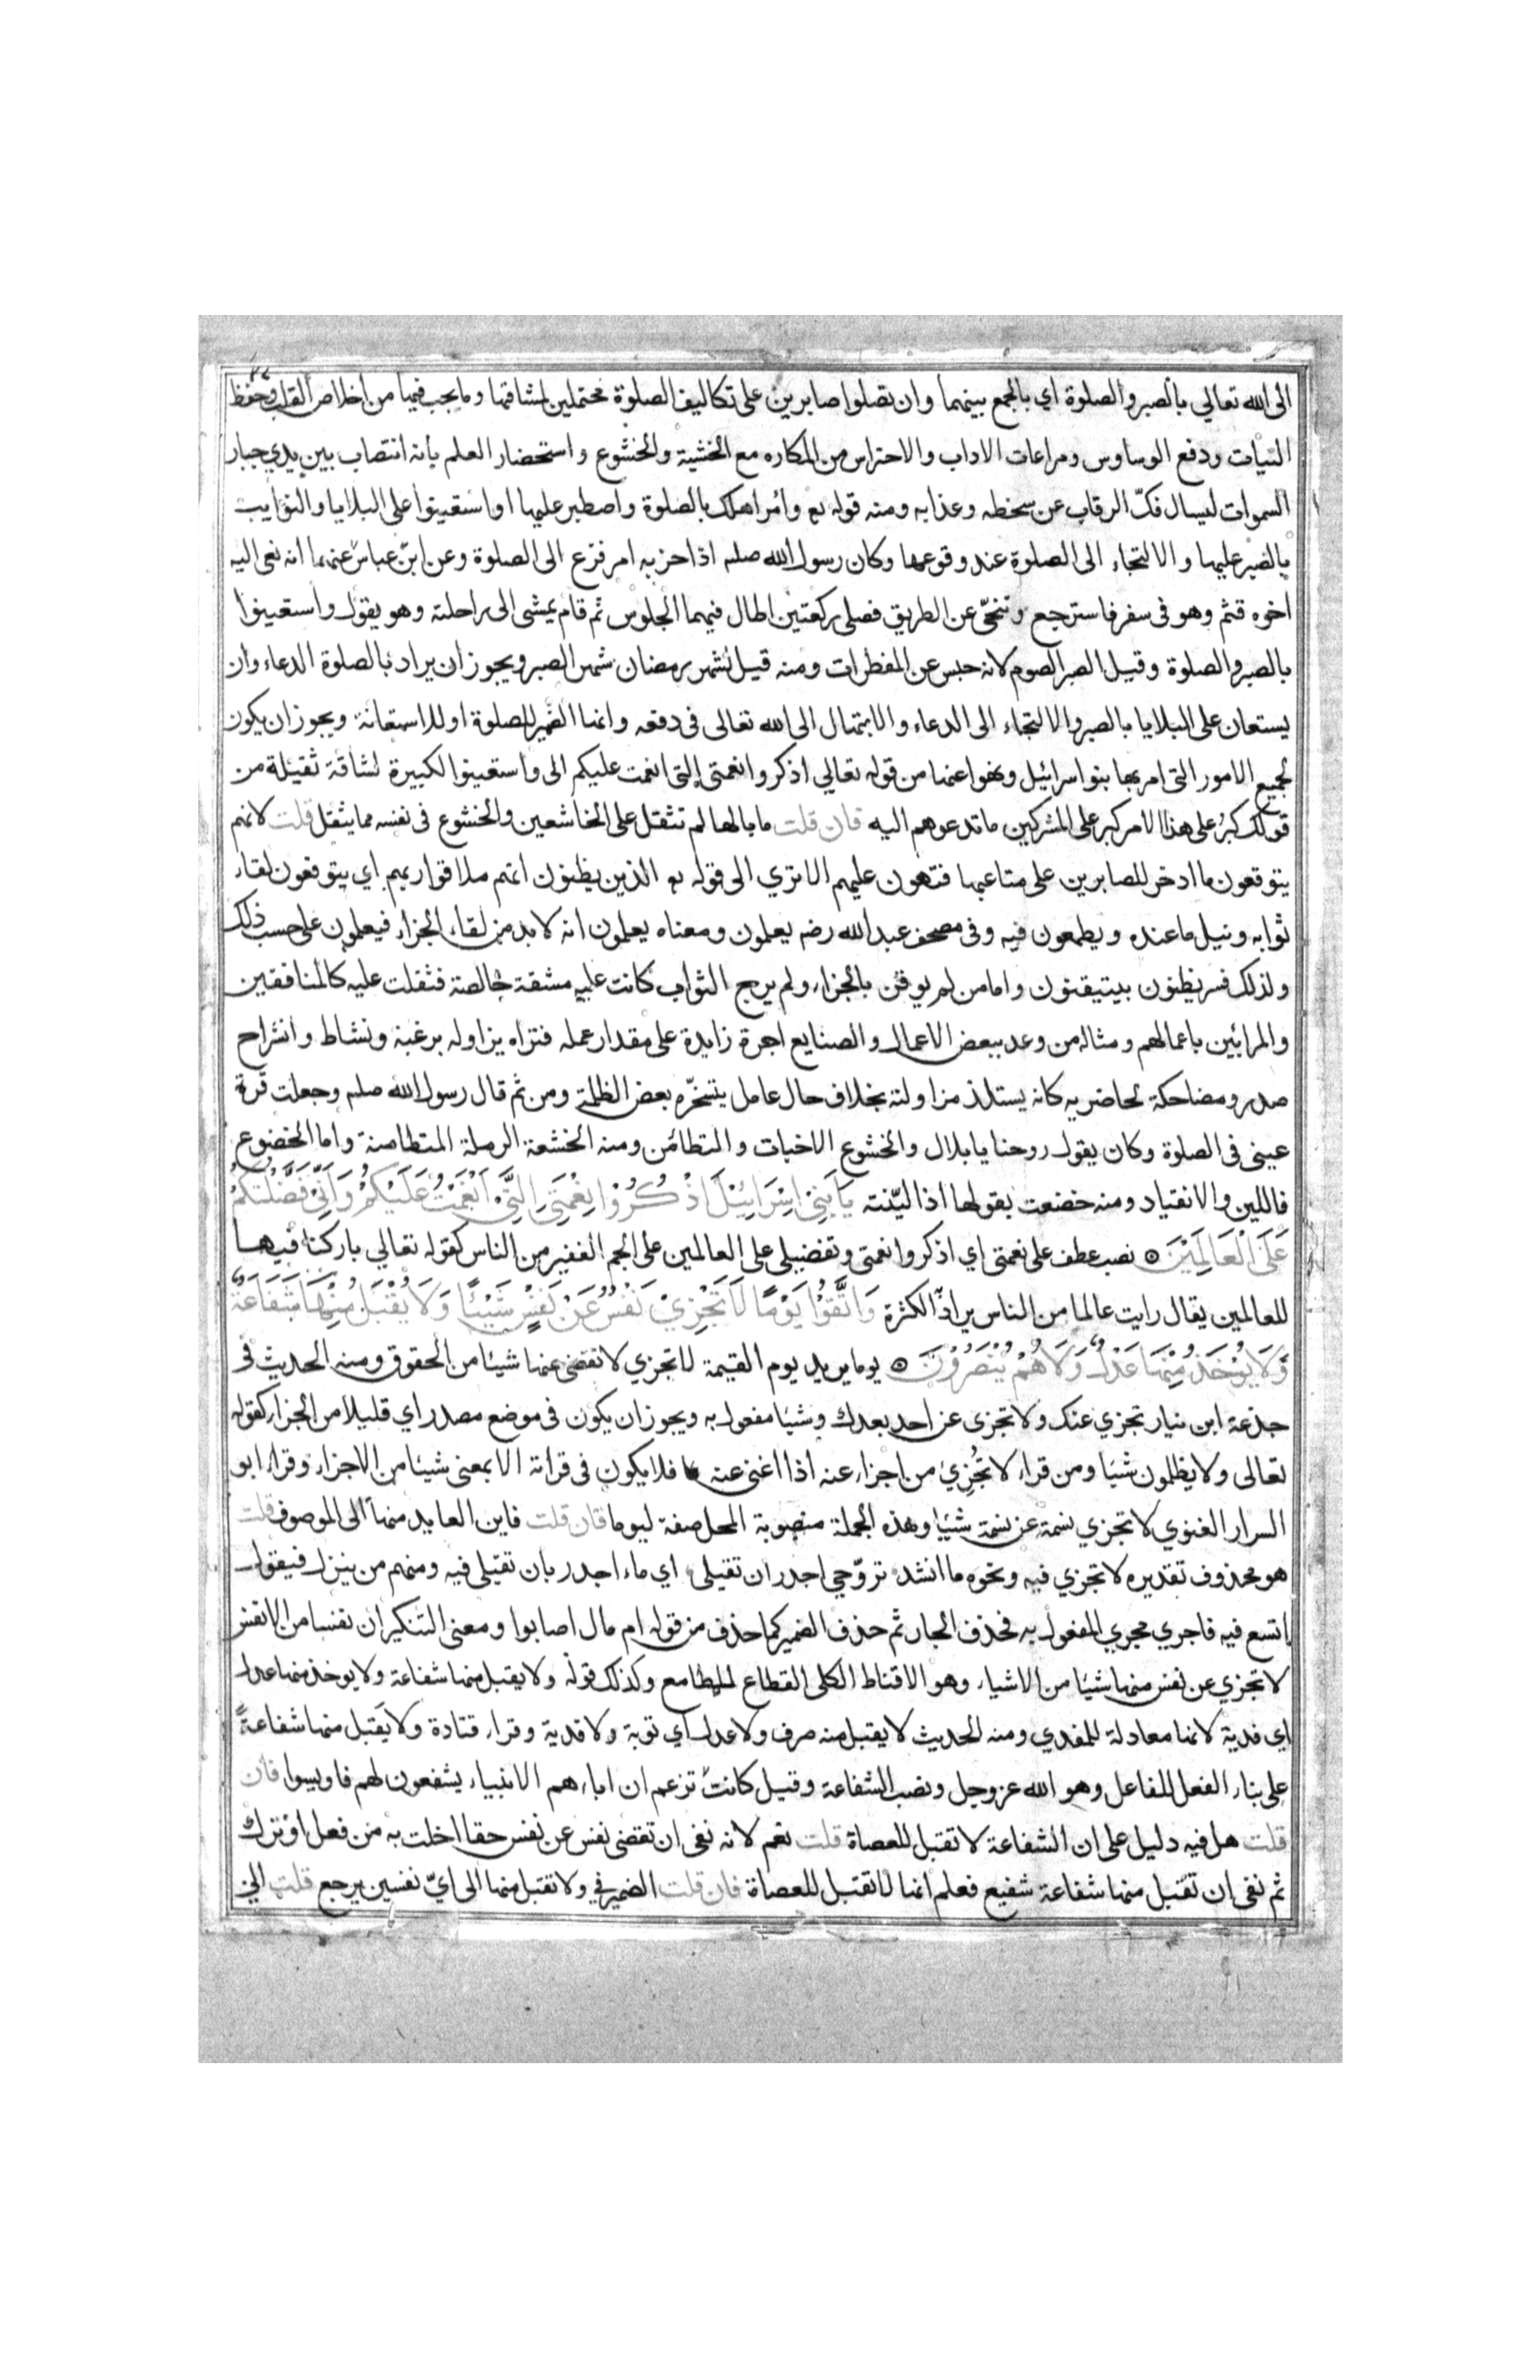 الى الله تعالي بالصبر والصلوة اي بالجمع بينهما وان تصلوا صابرين على تكاليف الصلوة محتملين لمشاقها وما يجب فيها من اخلاص القلب وحفظ
النيات ودفع الوساوس ومراعات الاداب والاحتراس من المكاره مع الخشية والخشوع واستحضار العلم بانه انتصاب بين يدي جبار
السموات ليسال فكّ الرقاب عن سخطه وعذابه ومنه قوله تع وأمر اهلك بالصلوة واصطبر عليها او استعينوا على البلايا والنوايب
بالصبر عليها والالتجاء الى الصلوة عند وقوعها وكان رسول الله صلم اذا حزبه امر فزع الى الصلوة وعن ابن عباس عنهما انه نعى اليه
اخوه قثم وهو فى سفر فاسترجع وتنحّى عن الطريق فصلى ركعتين اطال فيهما الجلوس ثم قام يمشى الى راحلته وهو يقول واستعينوا
بالصبر والصلوة وقيل الصبر الصوم لانه حبس عن المفطرات ومنه قيل لشهر رمضان شهر الصبر ويجوز ان يراد بالصلوة الدعاء وان
يستعان على البلايا بالصبر والالتجاء الى الدعاء والابتهال الى الله تعالى فى دفعه وانها الضمير للصلوة او للاستعانة ويجوز ان يكون
لجميع الامور التى امر بها بنو اسرائيل ونهوا عنها من قوله تعالي اذكروا نعمتى التى انعمت عليكم الى واستعينوا لكبيرة لشاقة ثقيلة من
قولك كبر على هذا الامر كبر على المشركين ما تدعوهم اليه فان قلت ما بالها لم تثقل على الخاشعين والخشوع فى نفسه مما يثقل قلت لانهم
يتوقعون ما ادخر للصابرين على متاعبها فتهون عليهم الا تري الى قوله تع الذين يظنون انهم ملاقوا ربهم اي يتوقعون لقاء
ثوابه ونيل ما عنده ويطمعون فيه وفى مصحف عبد الله رضه يعلمون ومعناه يعلمون انه لا بد من لقاء الجزاء فيعلمون على حسب ذلك
ولذلك فسر يظنون بيتيقنون واما من لم يوقن بالجزاء ولم يرج الثواب كانت عليه مشقة خالصة فثقلت عليه كالمنافقين
والمرائين باعمالهم ومثاله من وعد ببعض الاعمال والصنايع اجرة زايدة على مقدار عمله فتراه يزاوله برغبة ونشاط وانشراح
صدر ومضاحكة لحاضريه كانه يستلذ مزاولته بخلاف حال عامل يتسخّره بعض الظلمة ومن ثم قال رسول الله صلم وجعلت قرة
عينى فى الصلوة وكان يقول روحنا يا بلال والخشوع الاخبات والتطامن ومنه الخشعة الرملة المتطامنة واما الخضوع
فاللين والانقياد ومنه خضعت بقولها اذا ليّنته يَا بَنِي اِسْرَائِيْلَ اذْكُرُوا نِعْمَتِيَ الَّتِي اَنْعَمْتُ عَلَيْكُمْ وَاَنِّي فَضَّلْتُكُمْ
عَلَى الْعَالَمِيْنَ نصب عطف على نعمتى اي اذكروا نعمتى وتفضيلى على العالمين على الجم الغفير من الناس كقوله تعالي باركنا فيها
للعالمين يقال رايت عالما من الناس يراد الكثرة وَاتَّقُوا يَوْمًا لَا تَجْزِيْ نَفْسٌ عَنْ نَفْسٍ شَيْئًا وَلَا يُقْبَلُ مِنْهَا شَفَاعَةٌ
وَلَا يُؤْخَذُ مِنْهَا عَدْلٌ وَلَا هُمْ يُنْصَرُوْنَ يوما يريد يوم القيمة لا تجزي لا تقضى عنها شيئا من الحقوق ومنه الحديث فى
جذعة ابن نيار تجزي عنك ولا تجزى عن احد بعدك وشيئا مفعول به ويجوز ان يكون فى موضع مصدر اي قليلا من الجزاء كقوله
تعالى ولا يظلمون شيئا ومن قراء لا تُجْزِئ من اجزاء عنه اذا اغنى عنه فلا يكون فى قراته الا بمعنى شيئا من الاجزاء وقراء ابو
السرار الغنوي لا تجزي نسمة عن نسمة شيئا وهذه الجملة منصوبة المحل صفة ليوما فان قلت فاين العايد منها الى الموصوف قلت
هو محذوف تقديره لا تجزي فيه ونحوه ما انشد تروّحي اجدر ان تقيلى اي ماء اجدر بان تقيلى فيه ومنهم من ينزل فيقول
اتسع فيه فاجري مجري المفعول به فحذف الجار ثم حذف الضمير كما حذف من قوله ام مال اصابوا ومعنى التنكير ان نفسا من الانفس
لا تجزي عن نفس منها شيئا من الاشياء وهو الاقناط الكلى القطاع للمطامع وكذلك قوله ولا يقبل منها شفاعة ولا يوخذ منها عدل
اي فدية لانها معادلة للمفدي ومنه الحديث لا يقبل منه صرف ولا عدل اي توبة ولا فدية وقراء قتادة ولا يَقبل منها شفاعةً
على بناء الفعل للفاعل وهو الله عز وجل ونصب الشفاعة وقيل كانت تزعم ان اباءهم الانبياء يشفعون لهم فاويسوا فان
قلت هل فيه دليل على ان الشفاعة لا تقبل للعصاة قلت نعم لانه نفى ان تقضى نفس عن نفس حقا اخلت به من فعل او ترك
ثم نفى ان تقبل منها شفاعة شفيع فعلم انها لا تقبل للعصاة فان قلت الضمير في ولا تقبل منها الى ايّ نفسين يرجع قلت الى